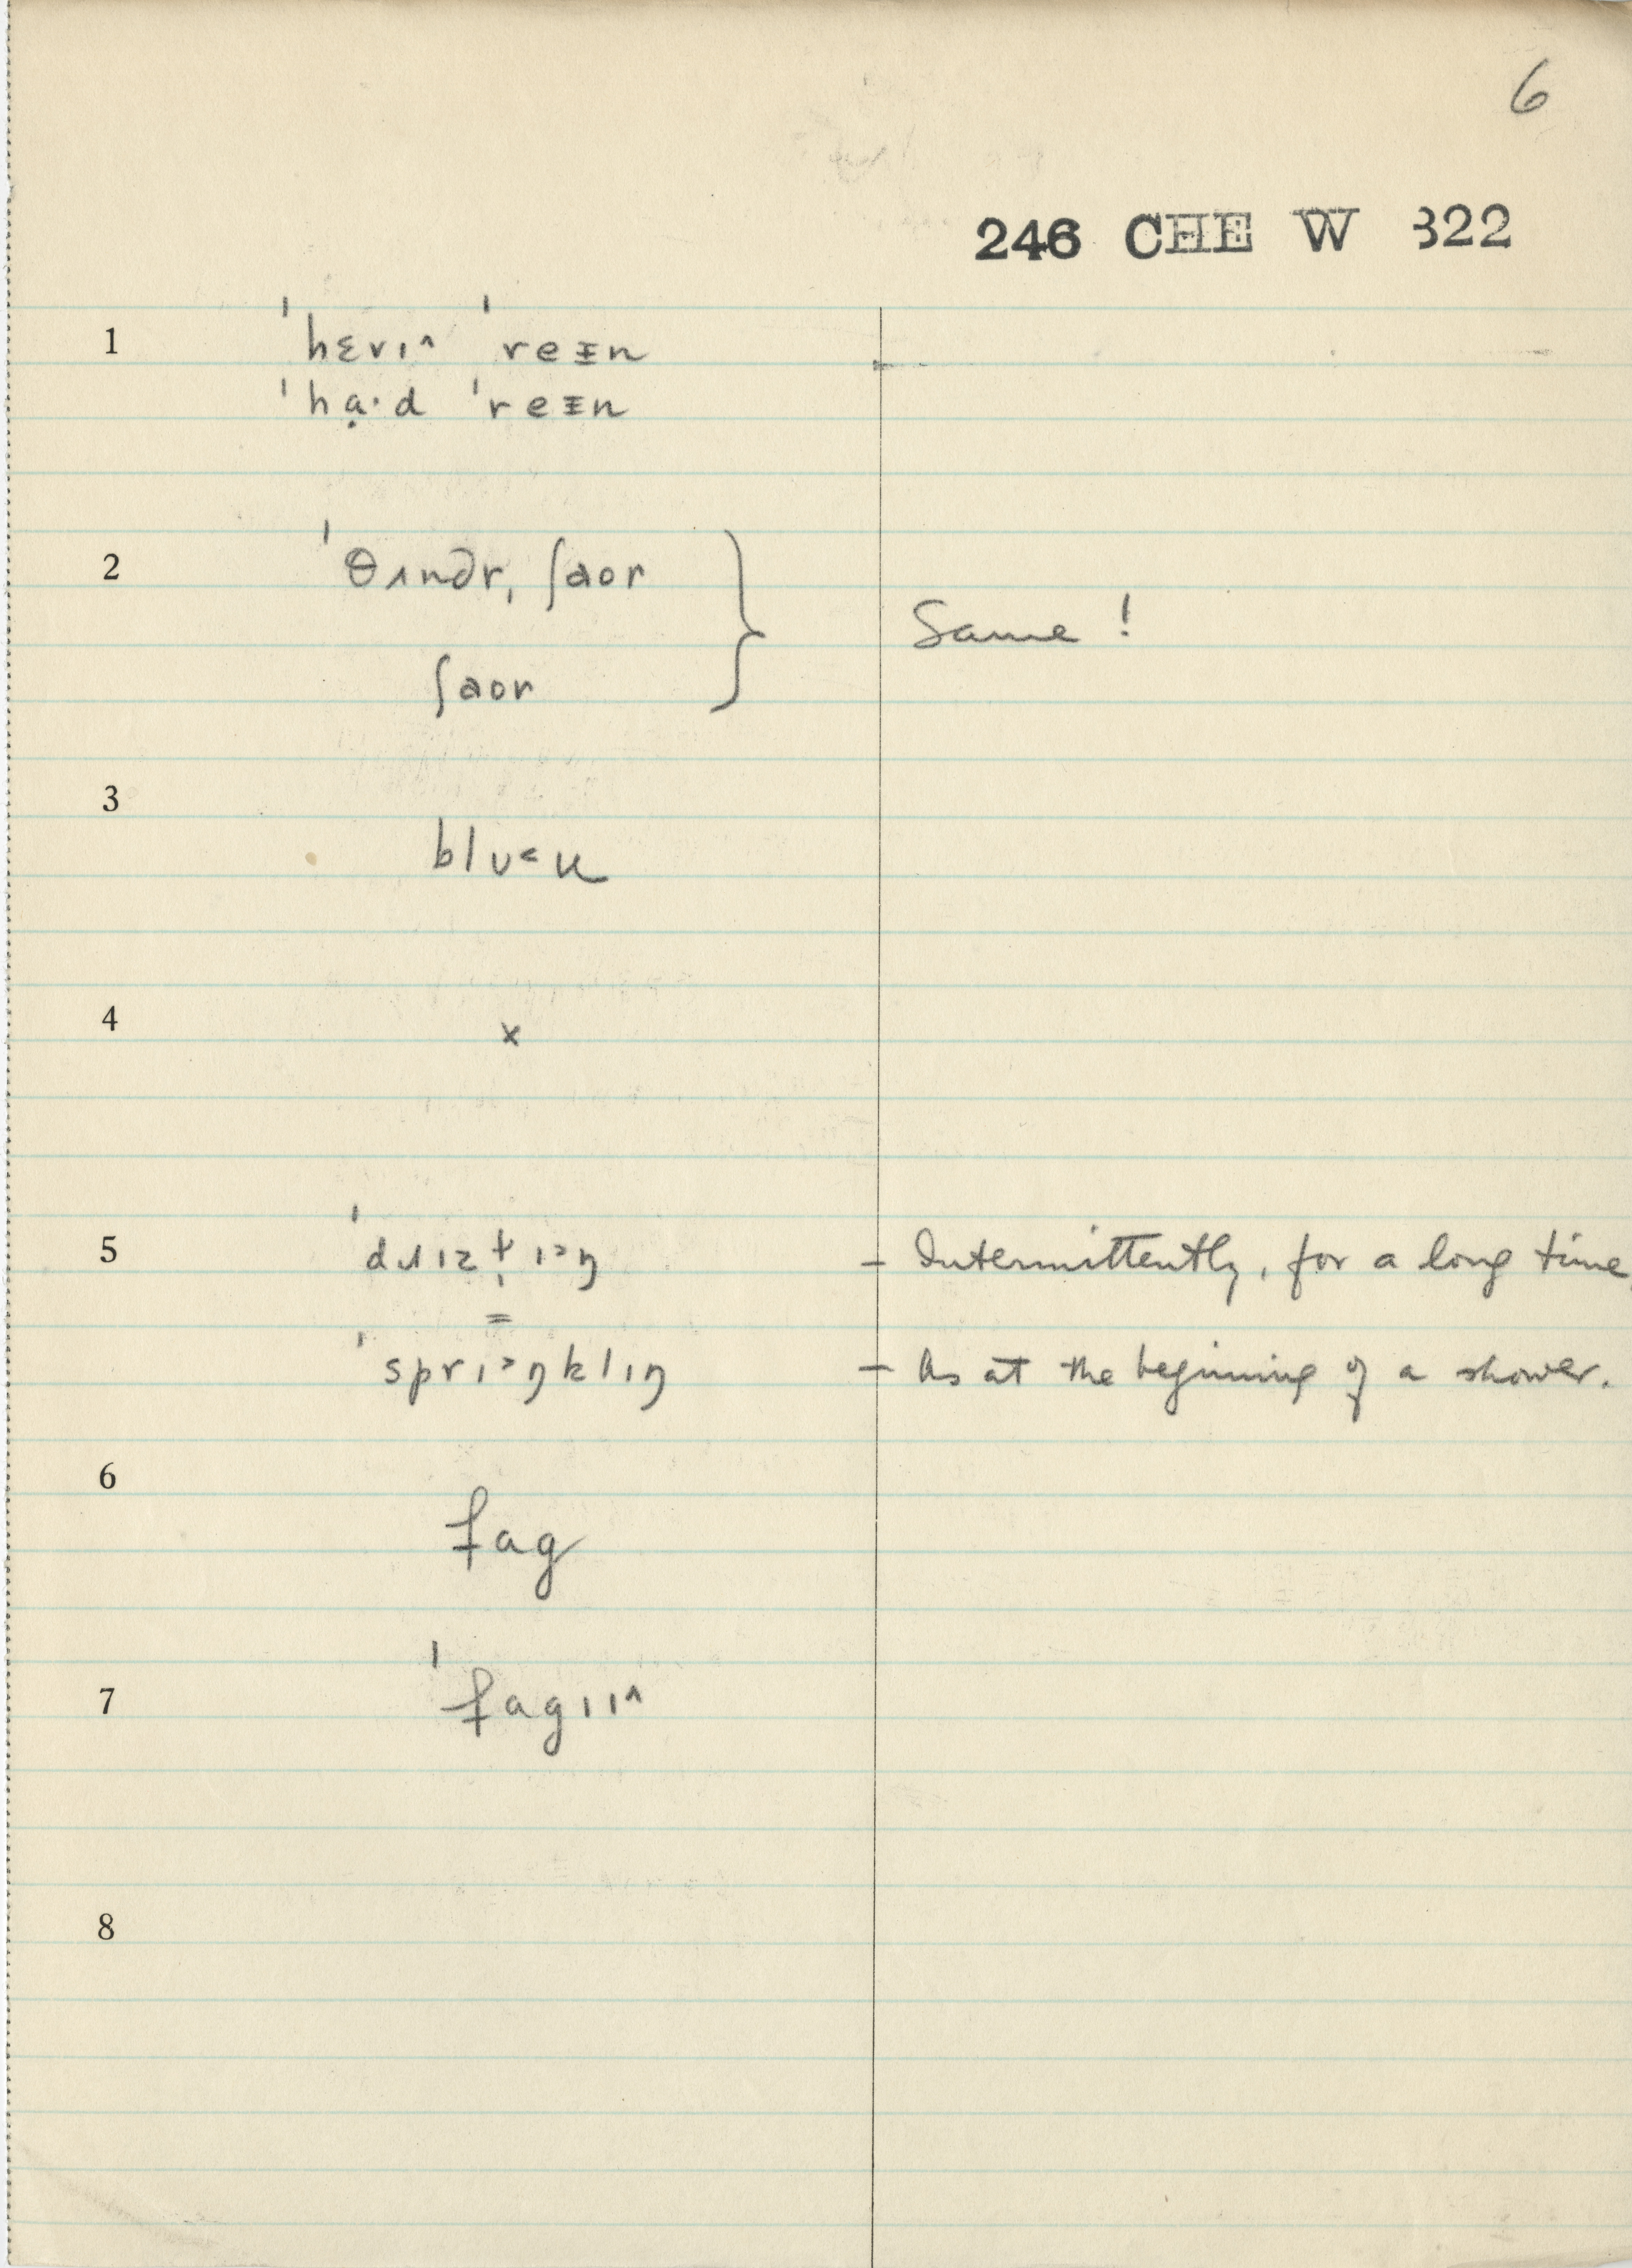 6
246 CHE W 322
1 ˈhɛvɪ^ ˈreᵻn
ˈhạ·d ˈreᵻn
2 ˈθʌndr, ʃaor
Same !
ʃaor
3
blʊ˂u
4 ×
5 – Intermittently, for a long time,
=
ˈsprɪ˃ŋklɪŋ – As at the beginning of a shower.
6
fag
7 ˈfagɪɪ^
8